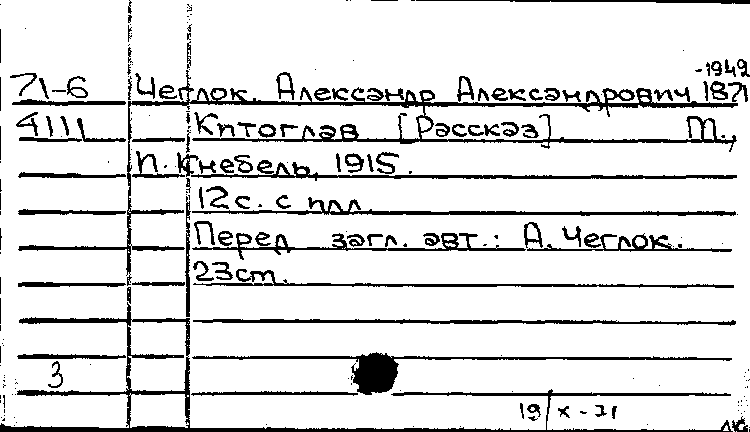 -1949
71-6 Чеглок. Александр Александрович, 1871
4111 Китоглав [Рассказ]. М.,
И. Кнебель, 1915.
12 с. с илл.
Перед загл. авт.: А. Чеглок.
23 см.
3
19/X-71